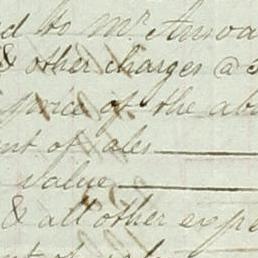 d to Mr. Answa
& other charges @ 5
price of the ab
nt of ales
value
& all other expe
nt of